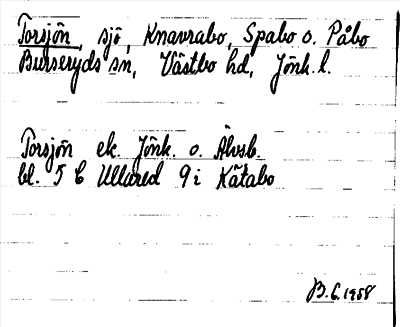 Torsjön, sjö, Knavrabo, Spabo o. Påbo
Burseryds sn, Västbo hd, Jönk. l.
Torsjön ek. Jönk. o. Älvsb.
bl. 5 C Ullared 9 i Kätabo
B. G. 1958